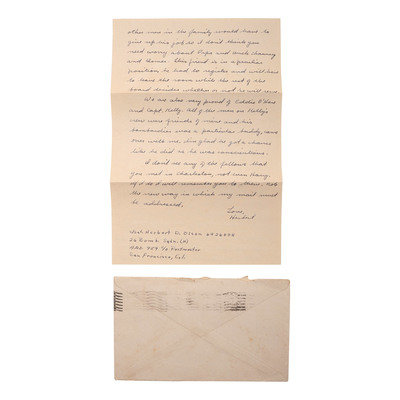 other men in the family would have to
give up his job so I don't think you
need worry about Papa and Uncle Chauncy
and Thomas. This friend is in a peculiar
position to had to register and will have
to leave the room while the rest of the
board decides whether or not he will serve.
We are also very proud of Eddie O'Hare
and Capt. Kelly. All of the men on Kelly's
crew were friends of mine and his
bombardier was a particular buddy, came
over with me. I'm glad he got a chance
like he did as he was conscientious.
I don't see any of the fellows that
you met in Charleston, not even Harry.
If I do I will remember you to them. Note
the new way in which my mail must
be addressed.
Love,
Herbert
Herbert D. Olson
26 Bomb. Sqdn. (H)
APO 959 c/o Postmaster
San Francisco, Cal.